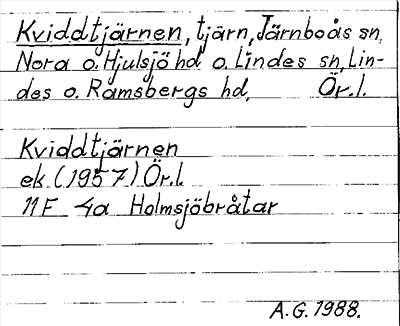 Kviddtjärnen, tjärn, Järnboås sn,
Nora o. Hjulsjö hd o. Lindes sn, Lin-
des o. Ramsbergs hd, Ör.l.
Kviddtjärnen
ek (1957) Ör.l.
11F 4a Holmsjöbråtar
A.G. 1988.